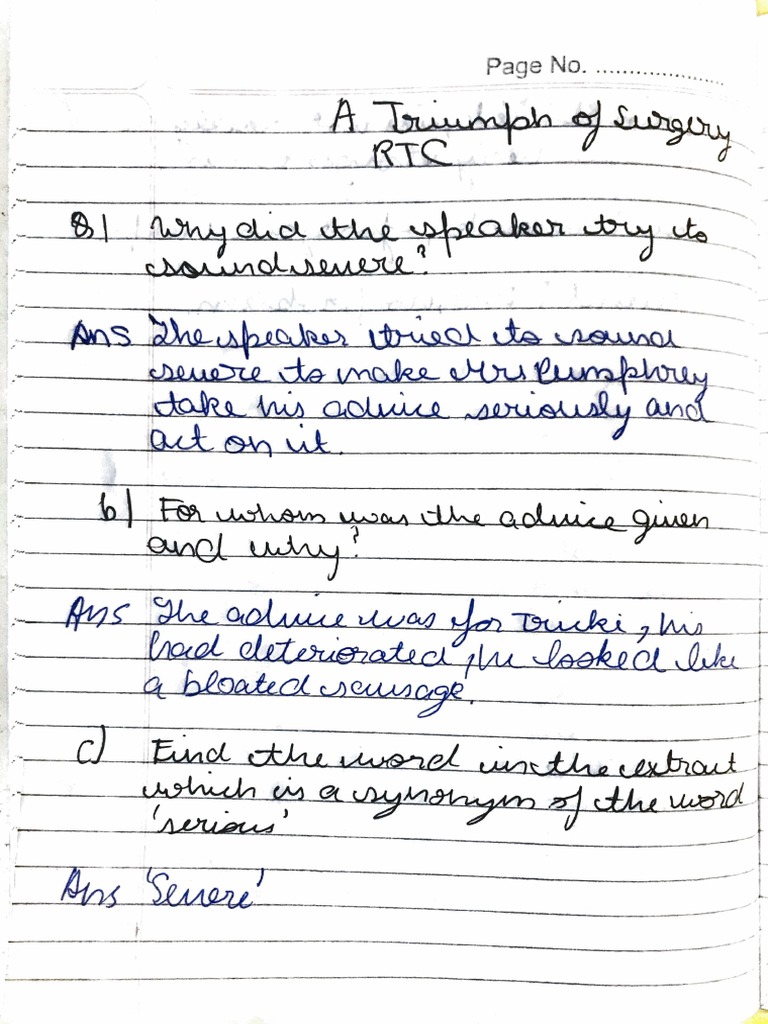 Page No. ....................
A Triumph of Surgery
RTC
Q1 Why did the speaker try to
sound severe?
Ans The speaker tried to sound
severe to make Mrs Pumphrey
take his advice seriously and
act on it.
b) For whom was the advice given
and why?
Ans The advice was for Tricki, his
had deteriorated, he looked like
a bloated sausage.
c) Find the word in the extract
which is a synonym of the word
'serious'
Ans 'Severe'